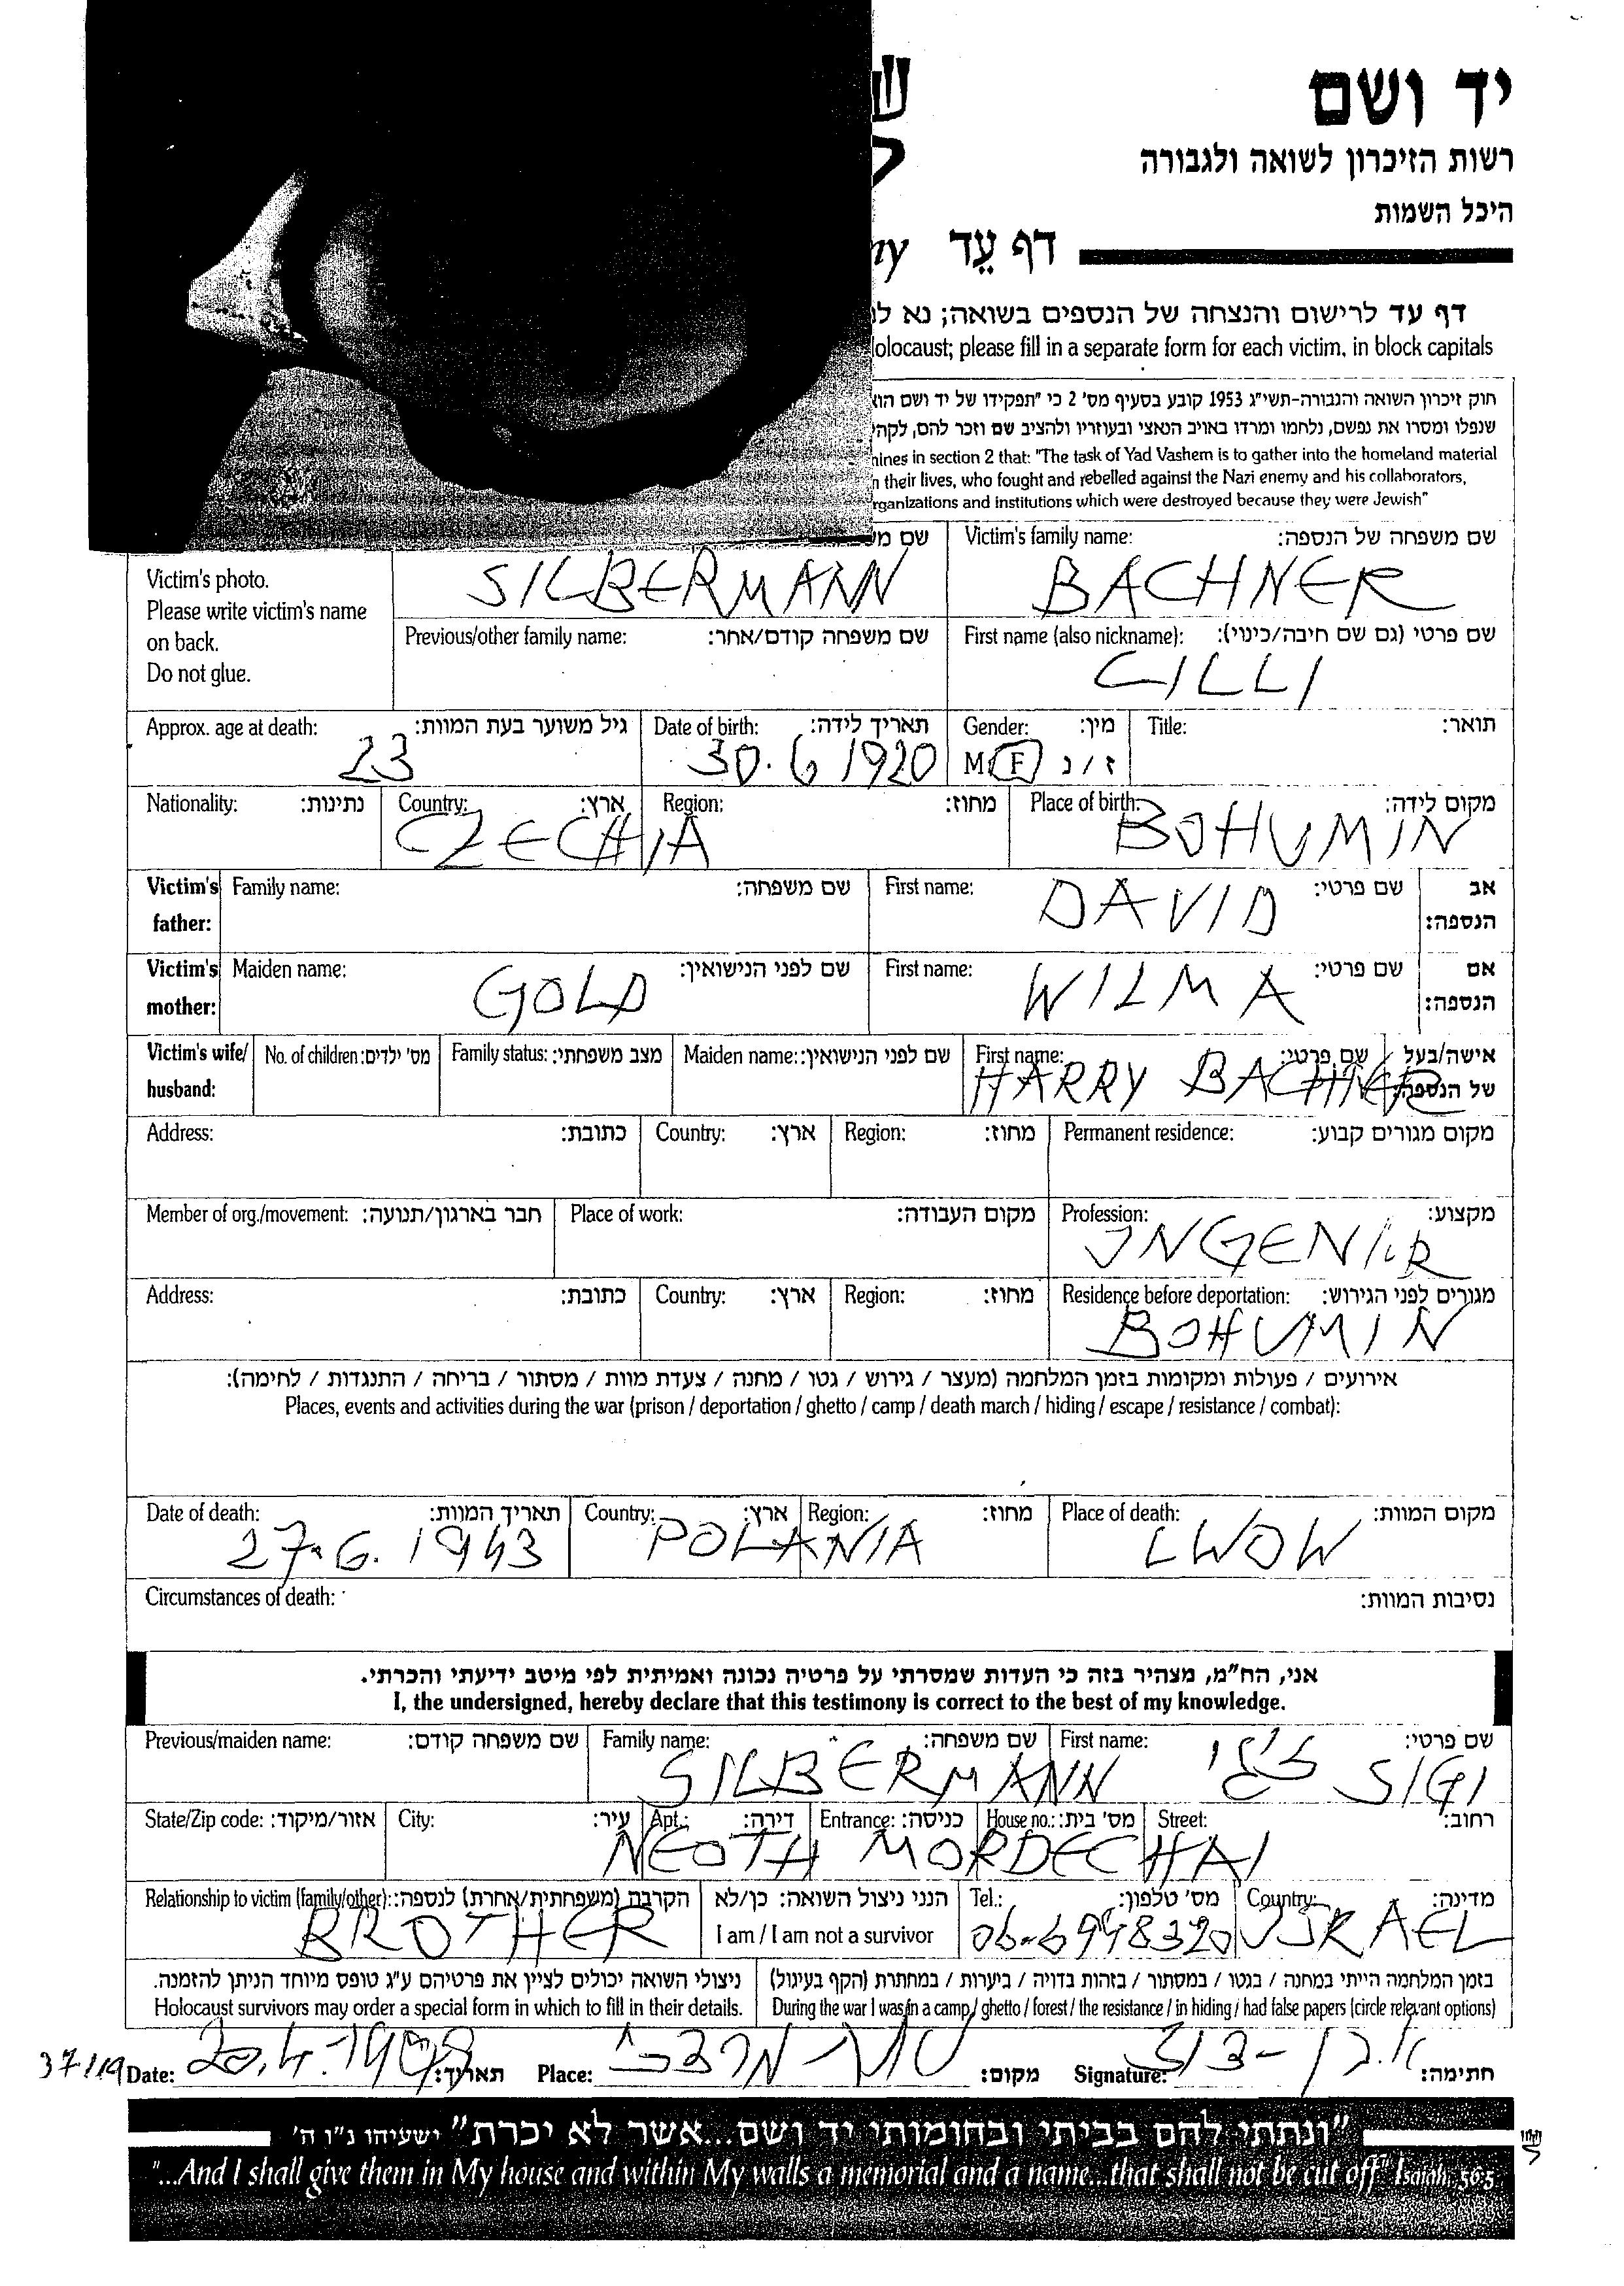 יד ושם
רשות הזיכרון לשואה ולגבורה
היכל השמות
דף עֵד
דף עד לרישום והנצחה של הנספים בשואה; נא
please fill in a separate form for each victim, in block capitals
חוק זיכרון השואה והגבורה-תשי"ג 1953 קובע בסעיף מס' 2 כי "תפקידו של יד ושם
שנפלו ומסרו את נפשם, נלחמו ומרדו באויב הנאצי ובעוזריו ולהציב שם וזכר להם,
in section 2 that: "The task of Yad Vashem is to gather into the homeland material
their lives, who fought and rebelled against the Nazi enemy and his collaborators,
and institutions which were destroyed because they were Jewish"
Victim's photo.
Please write victim's name
on back.
Do not glue.
שם
SILBERMANN
Victim's family name: שם משפחה של הנספה:
BACHNER
Previous/other family name: שם משפחה קודם/אחר:
First name (also nickname): שם פרטי (גם שם חיבה/כינוי):
CILLI
Approx. age at death: גיל משוער בעת המוות:
23
Date of birth: תאריך לידה:
30.6 1920
Gender: מין:
M F ז/נ
Title: תואר:
Nationality: נתינות:
Country: ארץ:
CZECHIA
Region: מחוז:
Place of birth: מקום לידה:
BOHUMIN
Victim's father: Family name: שם משפחה:
First name: שם פרטי: אב הנספה:
DAVID
Victim's mother: Maiden name: שם לפני הנישואין:
GOLD
First name: שם פרטי: אם הנספה:
WILMA
Victim's wife/ husband: No. of children: מס' ילדים:
Family status: מצב משפחתי:
Maiden name: שם לפני הנישואין:
First name: שם פרטי: אישה/בעל של הנספה:
HARRY BACHNER
Address: כתובת:
Country: ארץ:
Region: מחוז:
Permanent residence: מקום מגורים קבוע:
Member of org./movement: חבר בארגון/תנועה:
Place of work: מקום העבודה:
Profession: מקצוע:
Address: כתובת:
Country: ארץ:
Region: מחוז:
Residence before deportation: מגורים לפני הגירוש:
BOHUMIN
אירועים / פעולות ומקומות בזמן המלחמה (מעצר / גירוש / גטו / מחנה / צעדת מוות / מסתור / בריחה / התנגדות / לחימה):
Places, events and activities during the war (prison / deportation / ghetto / camp / death march / hiding / escape / resistance / combat):
Date of death: תאריך המוות:
27.6.1943
Country: ארץ:
POLANIA
Region: מחוז:
Place of death: מקום המוות:
LWOW
Circumstances of death: נסיבות המוות:
אני, הח"מ, מצהיר בזה כי העדות שמסרתי על פרטיה נכונה ואמיתית לפי מיטב ידיעתי והכרתי.
I, the undersigned, hereby declare that this testimony is correct to the best of my knowledge.
Previous/maiden name: שם משפחה קודם:
Family name: שם משפחה:
SILBERMANN
First name: שם פרטי:
SIGI
State/Zip code: אזור/מיקוד:
City: עיר:
Apt.: דירה:
Entrance: כניסה:
House no.: מס' בית:
Street: רחוב:
NEOTH MORDECHAI
Relationship to victim (family/other): הקרבה (משפחתית/אחרת) לנספה:
BROTHER
הנני ניצול השואה: כן/לא
I am / I am not a survivor
Tel.: מס' טלפון:
06-6948320
Country: מדינה:
ISRAEL
ניצולי השואה יכולים לציין את פרטיהם ע"ג טופס מיוחד הניתן להזמנה.
Holocaust survivors may order a special form in which to fill in their details.
בזמן המלחמה הייתי במחנה / בגטו / במסתור / בזהות בדויה / ביערות / במחתרת (הקף בעיגול)
During the war I was in a camp / ghetto / forest / the resistance / in hiding / had false papers (circle relevant options)
Date: תאריך:
Place: מקום:
Signature: חתימה:
"ונתתי להם בביתי ובחומותי יד ושם...אשר לא יכרת" ישעיהו נ"ו ה'
"...And I shall give them in My house and within My walls a memorial and a name...that shall not be cut off" Isaiah, 56:5